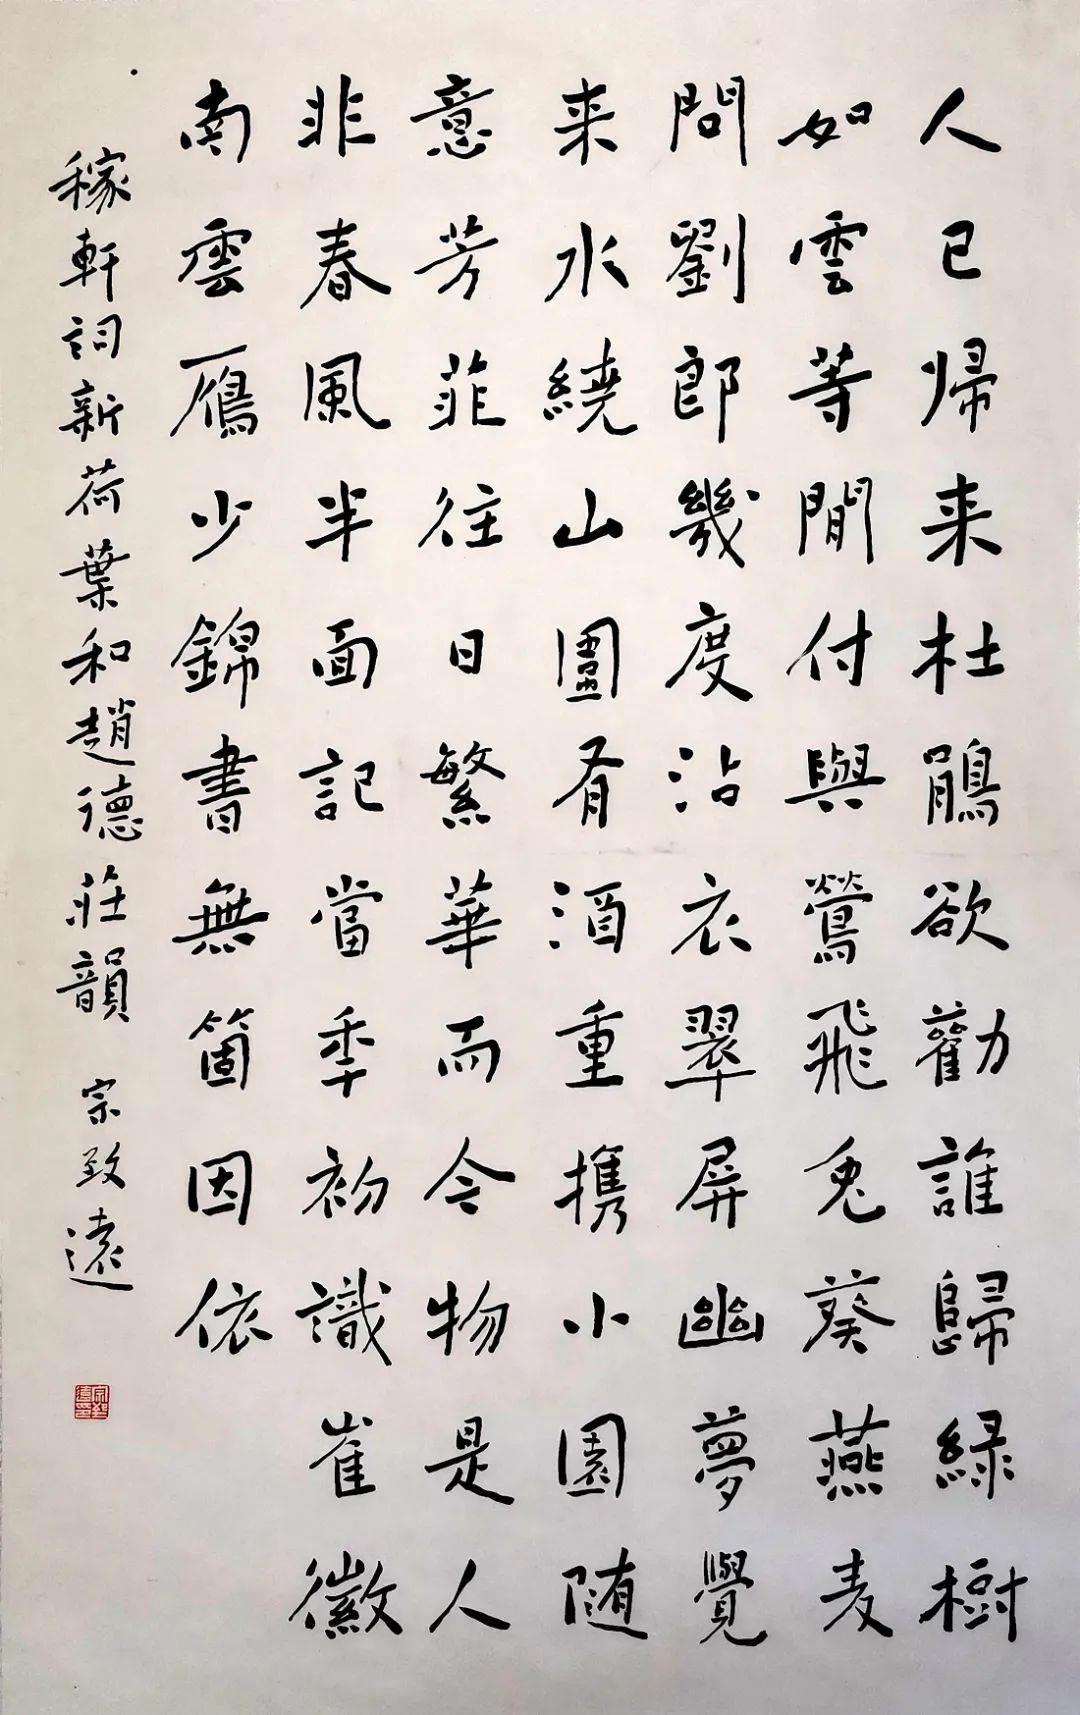 人已帰来杜鵑欲勸誰歸緑樹
如雲等閒付與鶯飛兔葵燕麦
問劉郎幾度沾衣翠屏幽夢覺
来水繞山圍有酒重携小園随
意芳菲往日繁華而今物是人
非春風半面記當季初識崔徽
南雲雁少錦書無箇因依
稼軒詞新荷葉和趙德莊韻 宗致遠